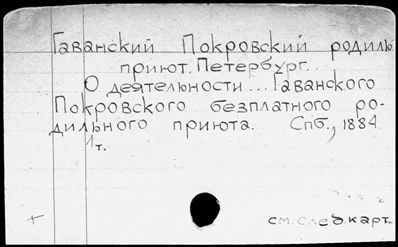 Гаванский Покровский родиль
приют. Петербург.
О деятельности... Гаванского
Покровского безплатного ро-
дильного приюта. Спб., 1884.
1т.
+
см. след. карт.